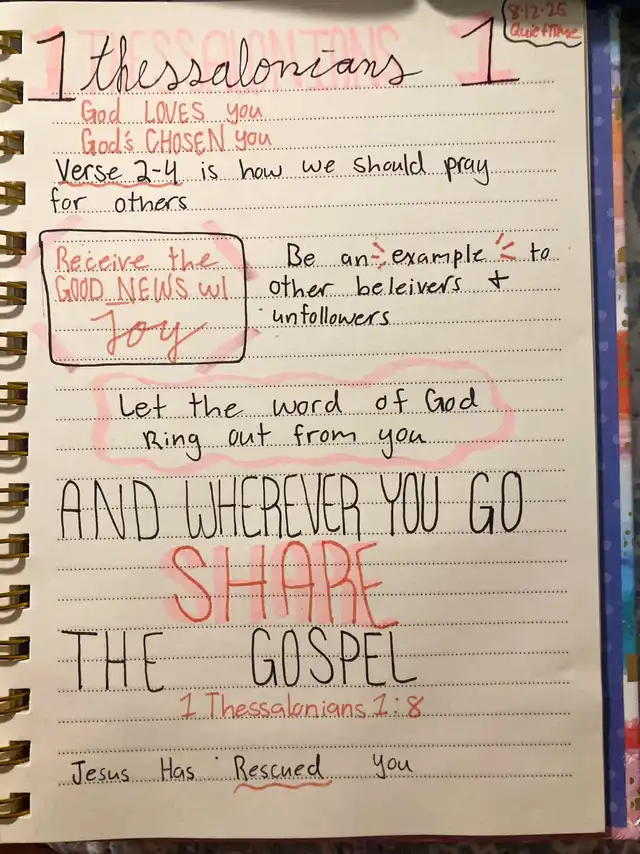 8-12-25
Quiet Time
1 thessalonians 1
THESSALONIANS
God LOVES you
God's CHOSEN you
Verse 2-4 is how we should pray
for others
Receive the
GOOD NEWS w/
Joy
Be an example to
other beleivers +
unfollowers
Let the word of God
Ring out from you
AND WHEREVER YOU GO
SHARE
THE GOSPEL
1 Thessalonians 1:8
Jesus Has Rescued you